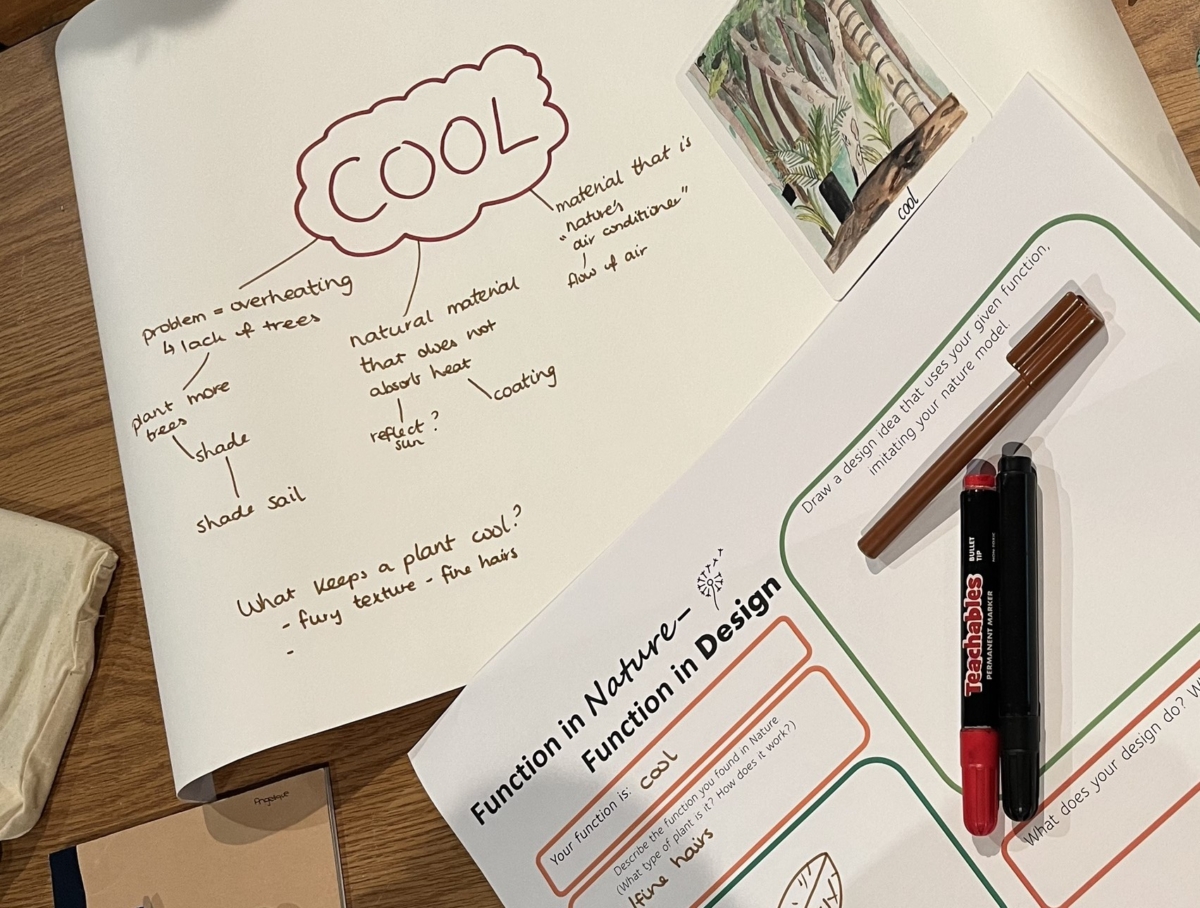 COOL
problem = overheating
↳ lack of trees
plant more
trees
shade
shade sail
natural material
that does not
absorb heat
reflect?
sun
coating
material that is
"nature's
air conditioner"
flow of air
What keeps a plant cool?
- fury texture - fine hairs
-
cool
Draw a design idea that uses your given function,
imitating your nature model.
Function in Nature-
Function in Design
Your function is: cool
Describe the function you found in Nature
(What type of plant is it? How does it work?)
fine hairs
What does your design do?
Teachables
PERMANENT MARKER
BULLET
TIP
Angelique